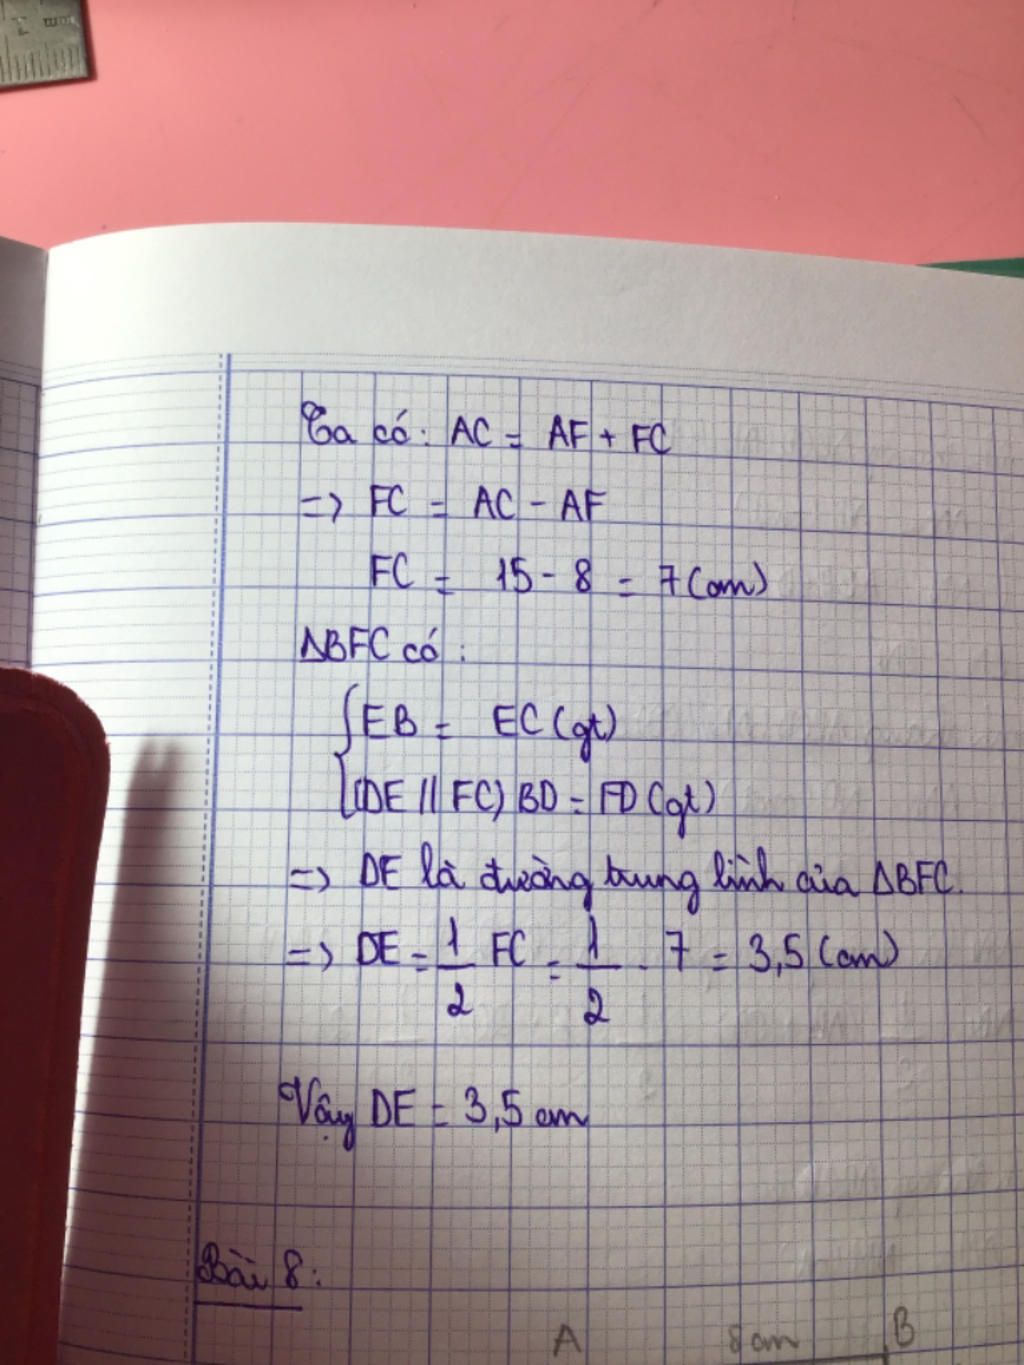 Ta có: AC = AF + FC
=> FC = AC - AF
FC = 15 - 8 = 7 (cm)
ΔBFC có:
{EB = EC (gt)
{(DE // FC) BD = FD (gt)
=> DE là đường trung bình của ΔBFC.
=> DE = 1/2 FC = 1/2 . 7 = 3,5 (cm)
Vậy DE = 3,5 cm
Bài 8:
A 8 cm B